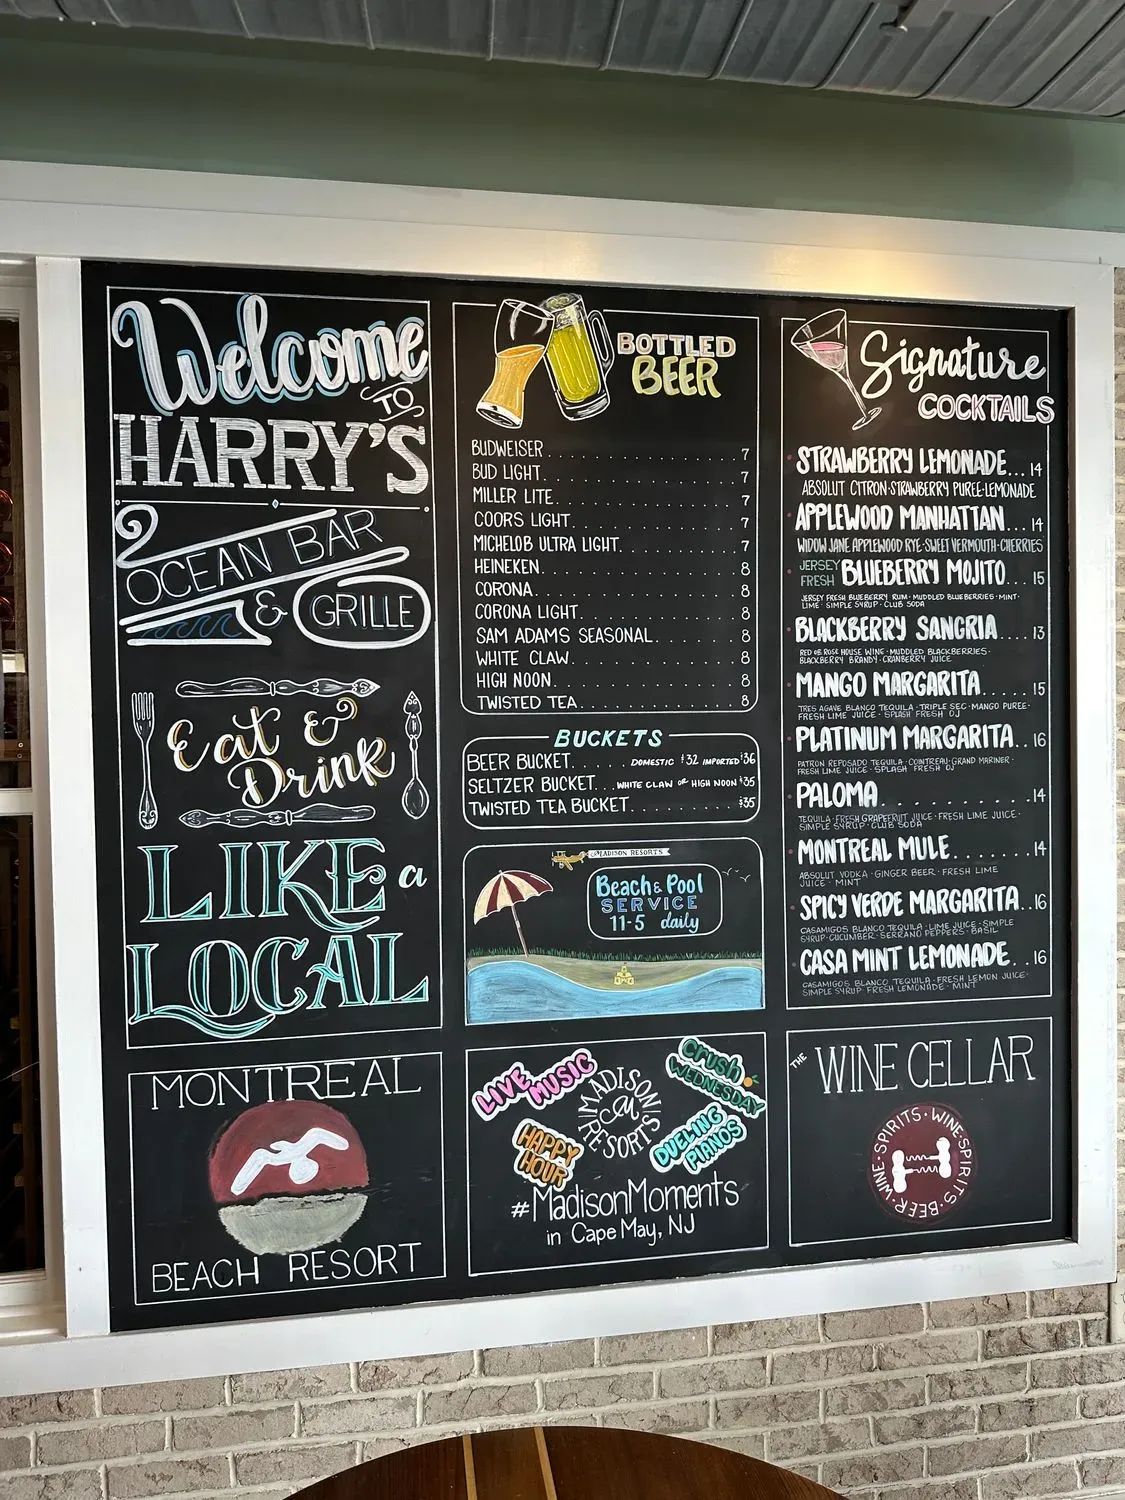 Welcome
TO
HARRY'S
OCEAN BAR
& GRILLE
Eat &
Drink
LIKE a
LOCAL
MONTREAL
BEACH RESORT
BOTTLED
BEER
BUDWEISER . . . . . . . . . . . . . . . . . 7
BUD LIGHT . . . . . . . . . . . . . . . . . 7
MILLER LITE . . . . . . . . . . . . . . . . 7
COORS LIGHT . . . . . . . . . . . . . . . 7
MICHELOB ULTRA LIGHT . . . . . . . . . . 7
HEINEKEN . . . . . . . . . . . . . . . . . 8
CORONA . . . . . . . . . . . . . . . . . . 8
CORONA LIGHT . . . . . . . . . . . . . . 8
SAM ADAMS SEASONAL . . . . . . . . 8
WHITE CLAW . . . . . . . . . . . . . . . 8
HIGH NOON . . . . . . . . . . . . . . . . 8
TWISTED TEA . . . . . . . . . . . . . . . 8
BUCKETS
BEER BUCKET . . . . . DOMESTIC $32 IMPORTED $36
SELTZER BUCKET . . . WHITE CLAW OR HIGH NOON $35
TWISTED TEA BUCKET . . . . . . . . . $35
MADISON RESORTS
Beach & Pool
SERVICE
11-5 daily
LIVE MUSIC
Crush
WEDNESDAY
MADISON
RESORTS
HAPPY
HOUR
DUELING
PIANOS
#MadisonMoments
in Cape May, NJ
Signature
COCKTAILS
STRAWBERRY LEMONADE... 14
ABSOLUT CITRON·STRAWBERRY PUREE·LEMONADE
APPLEWOOD MANHATTAN... 14
WIDOW JANE APPLEWOOD RYE·SWEET VERMOUTH·CHERRIES
JERSEY FRESH BLUEBERRY MOJITO... 15
JERSEY FRESH BLUEBERRY RUM · MUDDLED BLUEBERRIES · MINT·
LIME · SIMPLE SYRUP · CLUB SODA
BLACKBERRY SANGRIA.... 13
RED OR ROSE HOUSE WINE · MUDDLED BLACKBERRIES·
BLACKBERRY BRANDY · CRANBERRY JUICE
MANGO MARGARITA..... 15
TRES AGAVE BLANCO TEQUILA · TRIPLE SEC · MANGO PUREE·
FRESH LIME JUICE · SPLASH FRESH OJ
PLATINUM MARGARITA.. 16
PATRON REPOSADO TEQUILA · COINTREAU·GRAND MARINER ·
FRESH LIME JUICE · SPLASH FRESH OJ
PALOMA . . . . . . . . . . 14
TEQUILA · FRESH GRAPEFRUIT JUICE · FRESH LIME JUICE ·
SIMPLE SYRUP · CLUB SODA
MONTREAL MULE....... 14
ABSOLUT VODKA · GINGER BEER · FRESH LIME
JUICE · MINT
SPICY VERDE MARGARITA.. 16
CASAMIGOS BLANCO TEQUILA · LIME JUICE · SIMPLE
SYRUP·CUCUMBER · SERRANO PEPPERS · BASIL
CASA MINT LEMONADE.. 16
CASAMIGOS BLANCO TEQUILA · FRESH LEMON JUICE·
SIMPLE SYRUP FRESH LEMONADE · MINT
THE WINE CELLAR
WINE·SPIRITS·BEER·WINE·SPIRITS·